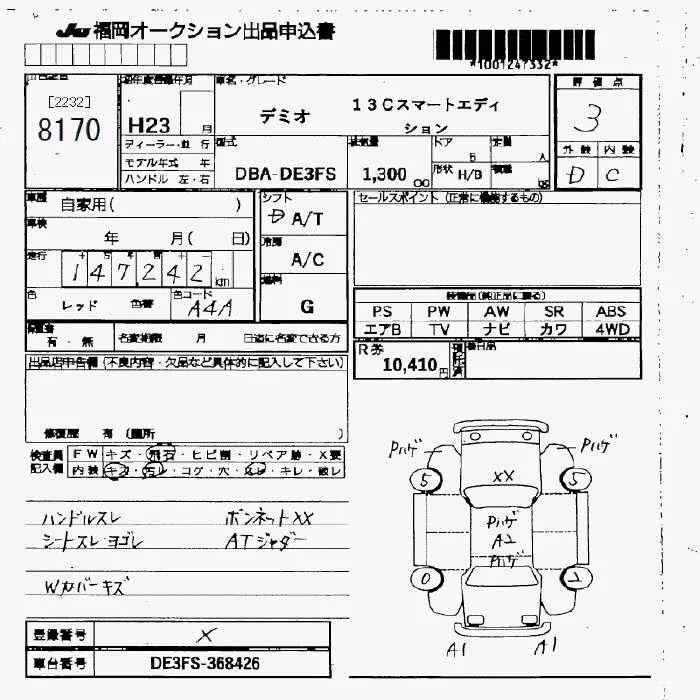 JU 福岡オークション出品申込書
*1001247332*
[2232]
8170
初年度登録年月
H23 月
ディーラー・並 行
モデル年式 年
ハンドル 左・右
車名・グレード
デミオ 13Cスマートエディ
ション
型式
DBA-DE3FS
排気量
1,300
ドア
5
定員
人
形状 H/B
評価点
3
外装 内装
D C
車歴
自家用( )
車検
年 月( 日)
走行
147,242 km
色
レッド 色番
色コード
A4A
シフト
D A/T
冷房
A/C
燃料
G
セールスポイント (正常に機能するもの)
装備品(純正品に限る)
PS PW AW SR ABS
エアB TV ナビ カワ 4WD
有・無
名変期限 月 日迄に名変できる方
R券
10,410円
出品店申告欄 (不良内容・欠品など具体的に記入して下さい)
修復歴 有 (箇所 )
検査員
記入欄
FW キズ・飛石・ヒビ割・リペア跡・X要
内装 キズ・汚レ・コゲ・穴・スレ・キレ・破レ
ハンドルスレ ボンネットXX
シートスレ ヨゴレ ATジャダー
Wカバーキズ
Pハゲ Pハゲ
5 5
XX
Pハゲ
A2
Pハゲ
0 2
A1 A1
登録番号 X
車台番号 DE3FS-368426